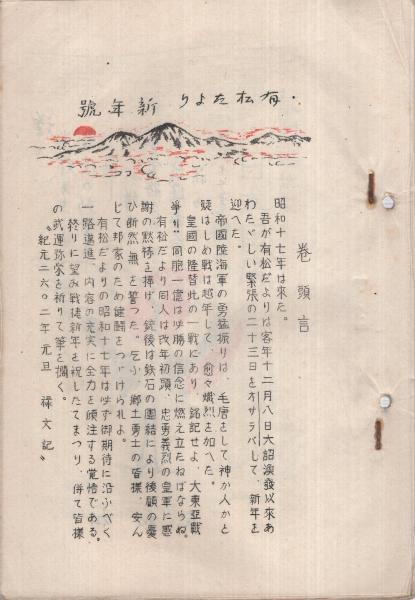 有松たより 新年號
巻頭言
昭和十七年は來た。
吾が有松だよりは客年十二月八日大詔渙發以來あ
わたゞしい緊張の二十三日をオサラバして、新年を
迎へた。
帝國陸海軍の勇猛振りは、毛唐をして神か人かと
疑はしめ戰は越年して、愈々熾烈を加へた。
皇國の隆替此の一戰にあり、銘記せよ、大東亞戰
爭リ〃同胞一億は必勝の信念に燃え立たねばならぬ。
有松だより同人は改年初頭、忠勇義烈の皇軍に感
謝の黙禱を捧げ、銃後は鉄石の團結により後顧の憂
ひ斷然〃無〃を誓つた。乞ふ、郷土勇士の皆様、安ん
じて邦家のため健鬪をつゞけられよ。
有松だよりの昭和十七年は必ず御期待に沿ふべく
一路邁進、内容の充実に全力を傾注する覚悟である。
終りに望み戰捷新年を祝したてまつり、併て皆様
の武運弥榮を祈りて筆を擱く。
〝紀元二六〇二年元旦 禄文記〟